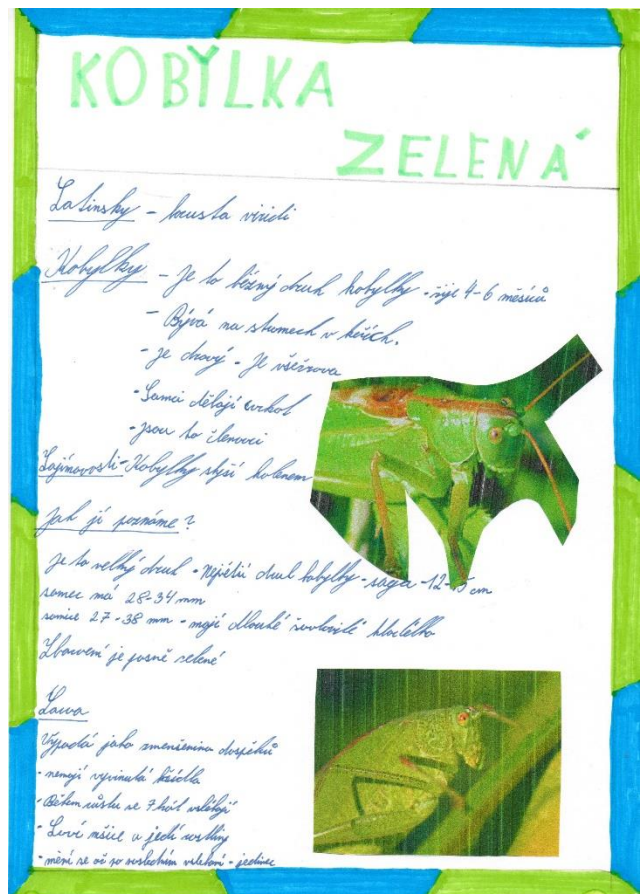 KOBYLKA
ZELENÁ
Latinsky - locusta viridi
Kobylky - je to běžný druh kobylky - žije 4-6 měsíců
- Bývá na stromech v keřích.
- je dravý - je všežrava
- Samci dělají cvrkot
- jsou to členovci
Zajímavosti - Kobylky slyší kolenem
Jak ji poznáme?
je to velký druh - největší druh kobylky - saga - 12- cm
samec má 28-34 mm
samice 27-38 mm - mají dlouhé kladélko
Zbarvení je jasně zelené
Larva
Vypadá jako zmenšenina dospěláků
- nemají vyvinutá křídla
- Během růstu se 7krát svlékají
- Loví mšice a jedí rostliny
- mění se až po svlékání - jedinec